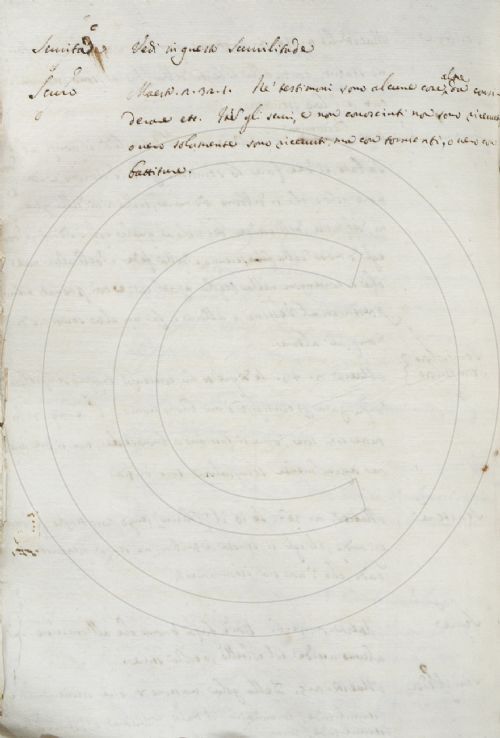 Servitade Vedi in questo Servilitade
Servo Maest. 2. 32. 1. Ne' testimoni sono alcune cose, altre da consi
derare etc. gli servi, e non conosciuti non sono ricevuti
overo solamente sono ricevuti, ma con tormenti, overo con
battiture.